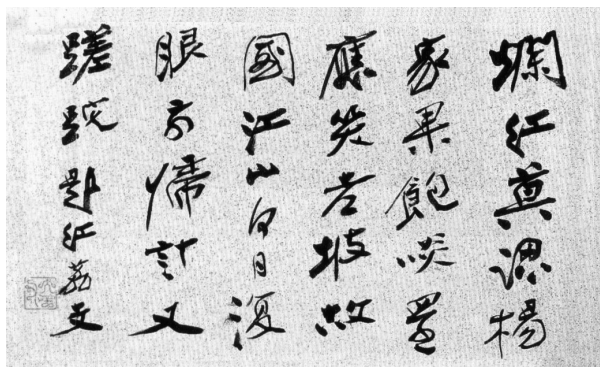 爛紅莫混楊
家果飽啖還
應笑老坡故
國江山何日復
眼前歸計又
蹉跎題紅荔支